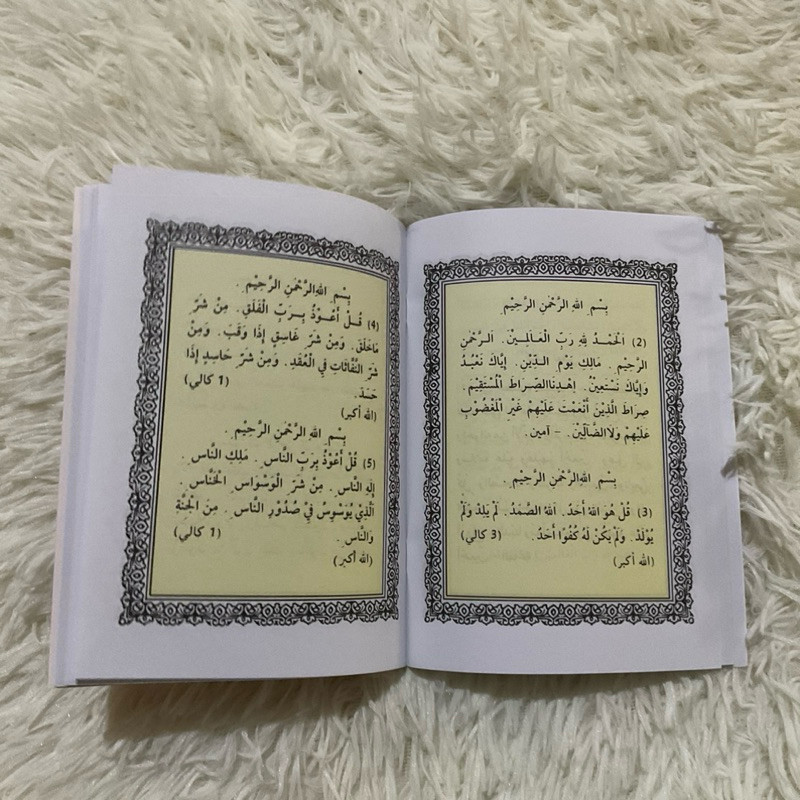 بِسْمِ اللهِ الرَّحْمٰنِ الرَّحِيْمِ
(2) اَلْحَمْدُ لِلّٰهِ رَبِّ الْعَالَمِيْنَ. اَلرَّحْمٰنِ
الرَّحِيْمِ. مَالِكِ يَوْمِ الدِّيْنِ. إِيَّاكَ نَعْبُدُ
وَإِيَّاكَ نَسْتَعِيْنُ. اِهْدِنَاالصِّرَاطَ الْمُسْتَقِيْمَ.
صِرَاطَ الَّذِيْنَ أَنْعَمْتَ عَلَيْهِمْ غَيْرِ الْمَغْضُوْبِ
عَلَيْهِمْ وَلَاالضَّآلِّيْنَ. - آمين.
بِسْمِ اللهِ الرَّحْمٰنِ الرَّحِيْمِ
(3) قُلْ هُوَ اللهُ أَحَدٌ. اَللهُ الصَّمَدُ. لَمْ يَلِدْ وَلَمْ
يُوْلَدْ. وَلَمْ يَكُنْ لَهُ كُفُوًا أَحَدٌ. (3 كالي)
(الله أكبر)
بِسْمِ اللهِ الرَّحْمٰنِ الرَّحِيْمِ.
(4) قُلْ أَعُوْذُ بِرَبِّ الْفَلَقِ. مِنْ شَرِّ
مَاخَلَقَ. وَمِنْ شَرِّ غَاسِقٍ إِذَا وَقَبَ. وَمِنْ
شَرِّ النَّفَّاثَاتِ فِي الْعُقَدِ. وَمِنْ شَرِّ حَاسِدٍ إِذَا
حَسَدَ. (1 كالي)
(الله أكبر)
بِسْمِ اللهِ الرَّحْمٰنِ الرَّحِيْمِ.
(5) قُلْ أَعُوْذُ بِرَبِّ النَّاسِ. مَلِكِ النَّاسِ.
إِلٰهِ النَّاسِ. مِنْ شَرِّ الْوَسْوَاسِ الْخَنَّاسِ.
اَلَّذِيْ يُوَسْوِسُ فِيْ صُدُوْرِ النَّاسِ. مِنَ الْجِنَّةِ
وَالنَّاسِ. (1 كالي)
(الله أكبر)